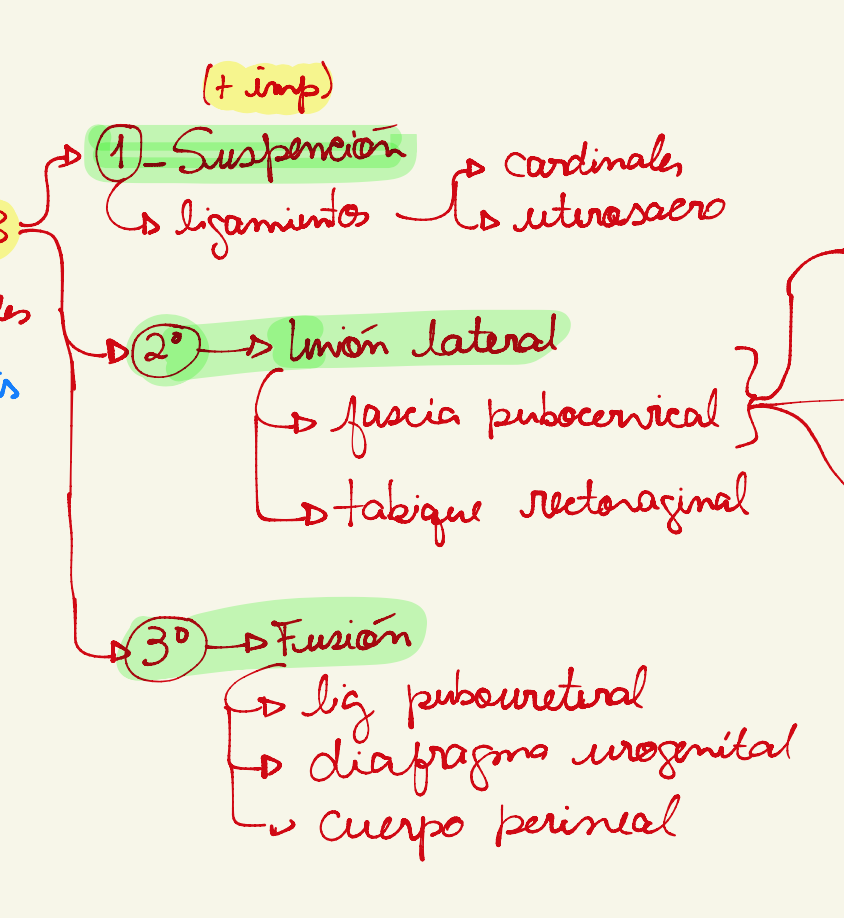 (+ imp)
1-Suspención
ligamientos
cardinales
uterosacro
2º Unión lateral
fascia pubocervical
tabique rectovaginal
3º Fusión
lig puboureteral
diafragma urogenital
cuerpo perineal